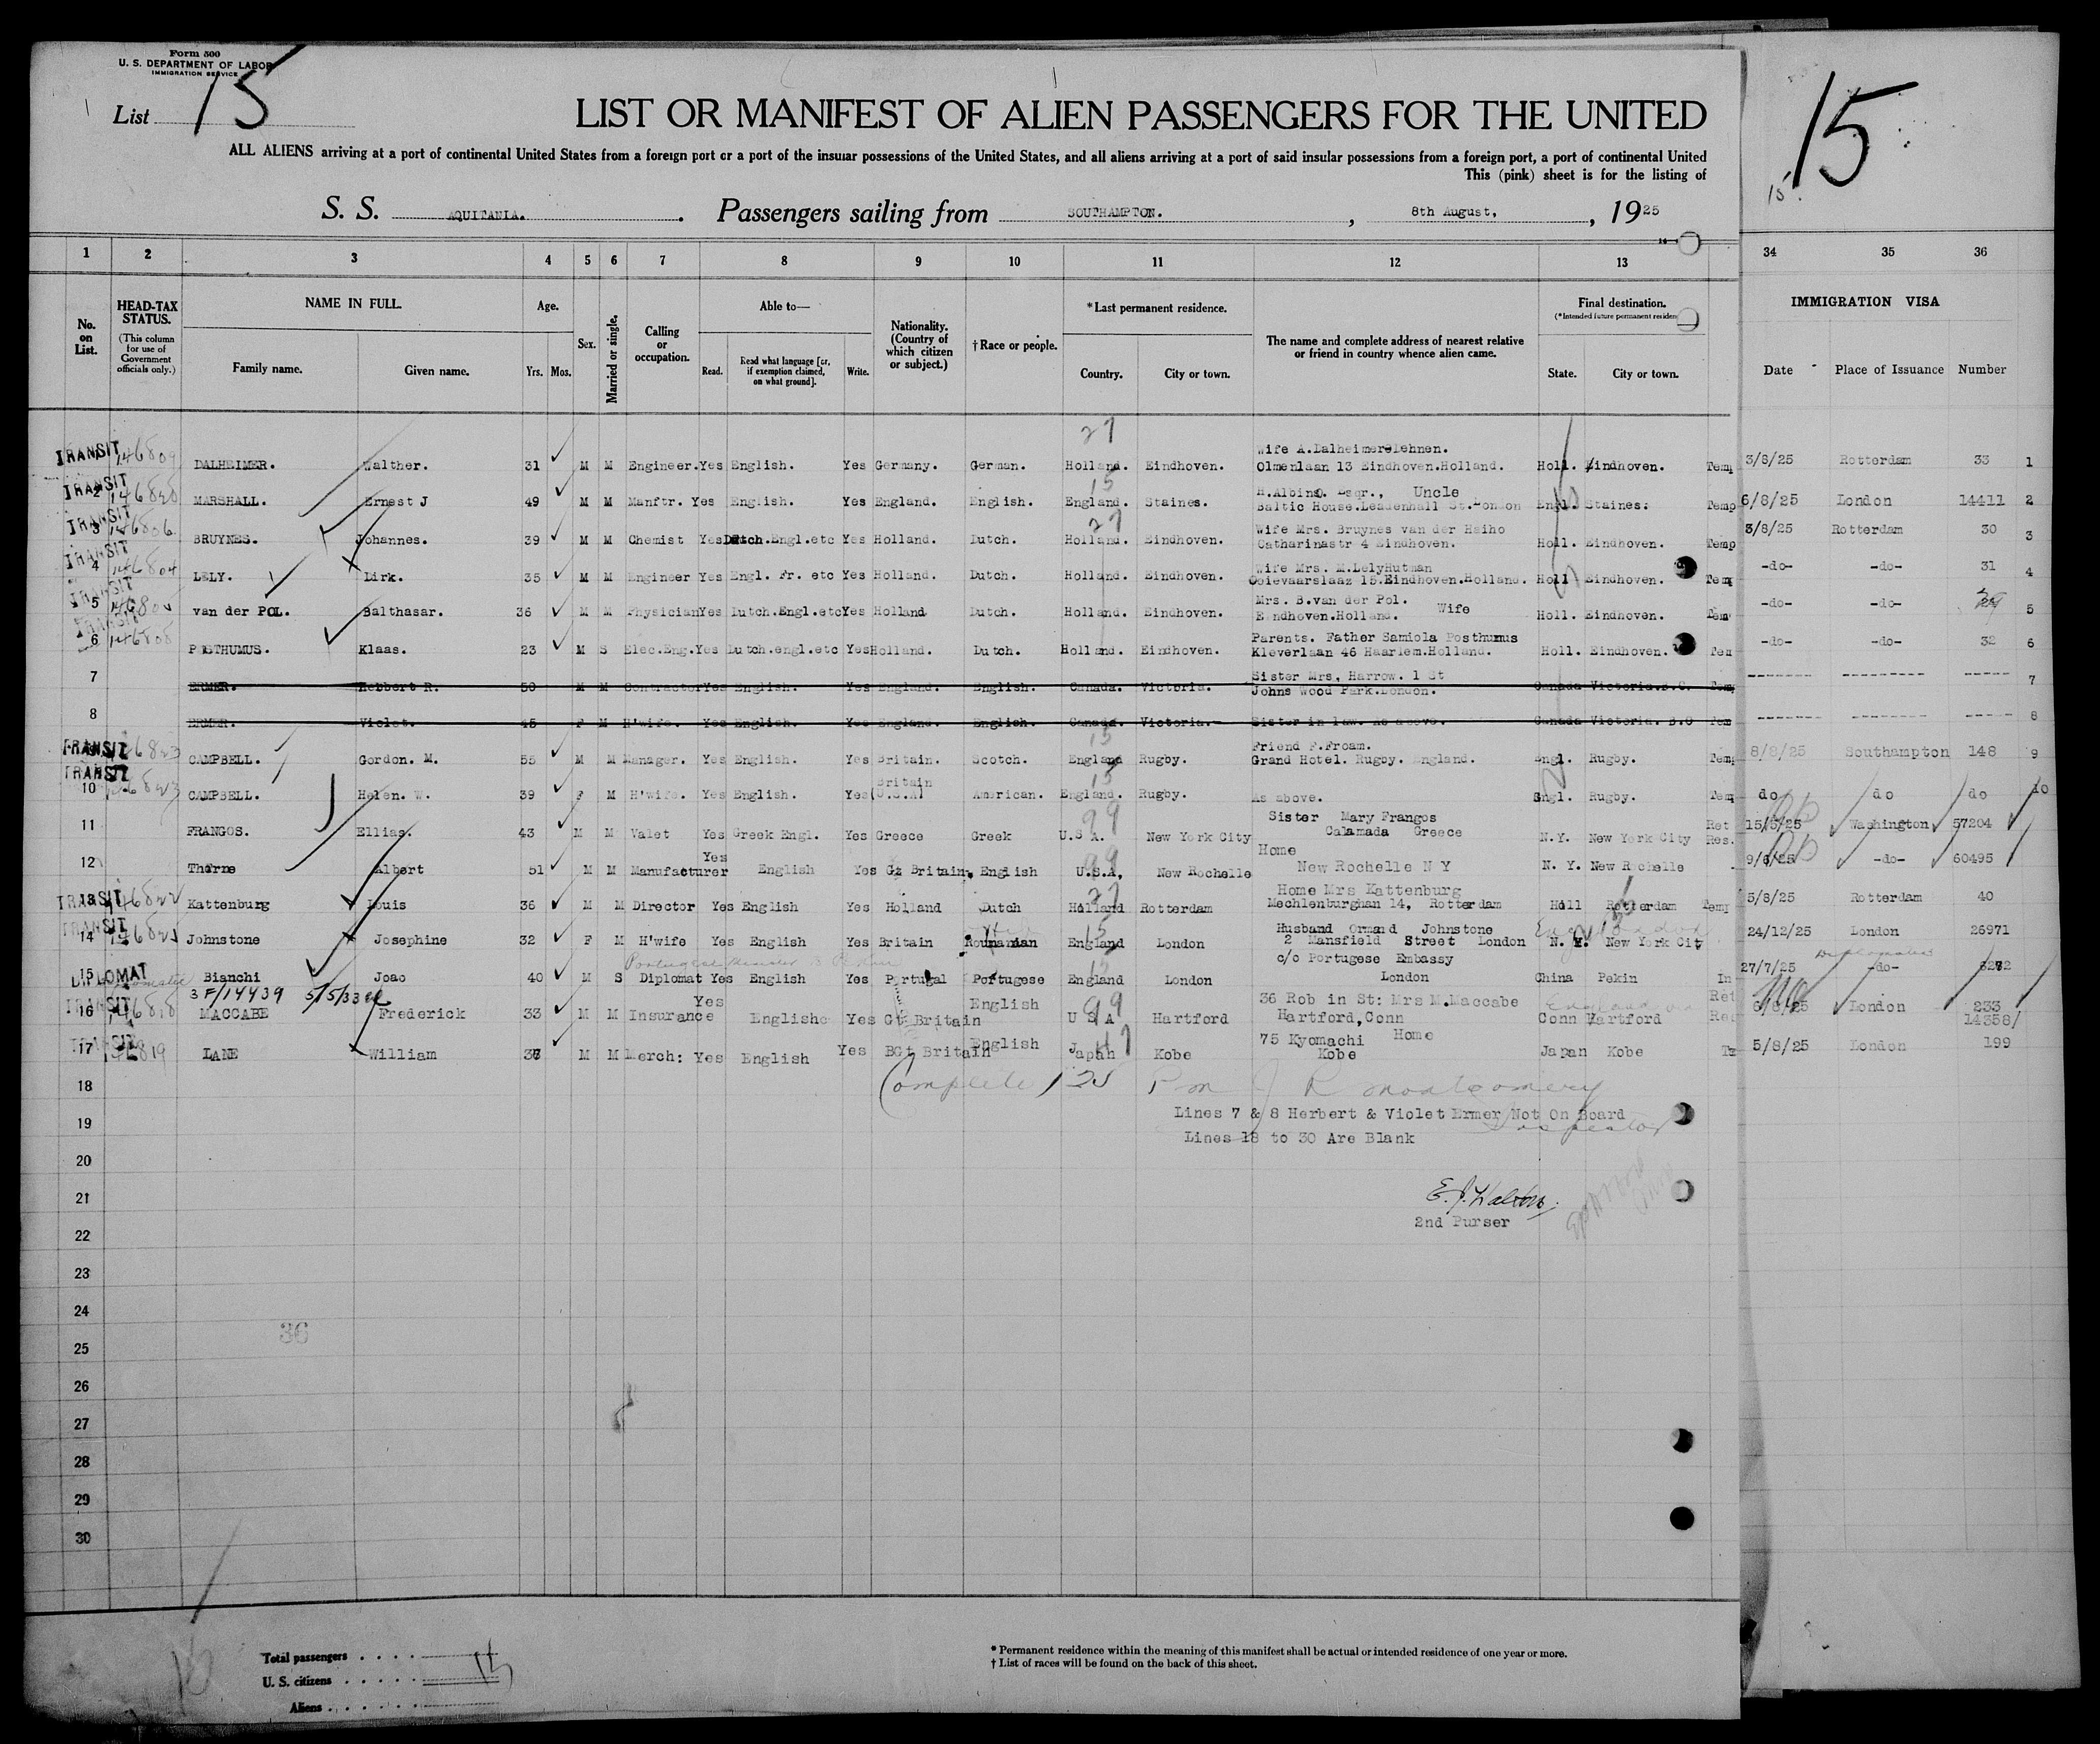 Form 500
U. S. DEPARTMENT OF LABOR
IMMIGRATION SERVICE
List 15
15
15
LIST OR MANIFEST OF ALIEN PASSENGERS FOR THE UNITED
ALL ALIENS arriving at a port of continental United States from a foreign port or a port of the insular possessions of the United States, and all aliens arriving at a port of said insular possessions from a foreign port, a port of continental United
This (pink) sheet is for the listing of
S. S. AQUITANIA. Passengers sailing from SOUTHAMPTON. , 8th August, , 1925
1 2 3 4 5 6 7 8 9 10 11 12 13 34 35 36
No. on List.
HEAD-TAX STATUS.
(This column for use of Government officials only.)
NAME IN FULL.
Family name. Given name.
Age.
Yrs. Mos.
Sex.
Married or single.
Calling or occupation.
Able to—
Read. Read what language [or, if exemption claimed, on what ground]. Write.
Nationality. (Country of which citizen or subject.)
†Race or people.
*Last permanent residence.
Country. City or town.
The name and complete address of nearest relative or friend in country whence alien came.
Final destination.
(*Intended future permanent residen
State. City or town.
IMMIGRATION VISA
Date Place of Issuance Number
27
Wife A.Dalheimer Lehnen.
TRANSIT 146809 DALHEIMER. Walther. 31 M M Engineer. Yes English. Yes Germany. German. Holland. Eindhoven. Olmenlaan 13 Eindhoven.Holland. Holl. Eindhoven. Temp 3/8/25 Rotterdam 33 1
15
H.Albino. Esqr., Uncle
TRANSIT 2 MARSHALL. Ernest J 49 M M Manftr. Yes English. Yes England. English. England. Staines. Baltic House.Leadenhall St.London Engl. Staines. Temp 6/8/25 London 14411 2
27
Wife Mrs. Bruynes van der Heiho
TRANSIT 3 146806 BRUYNES. Johannes. 39 M M Chemist Yes Dutch.Engl.etc Yes Holland. Dutch. Holland. Eindhoven. Catharinastr 4 Eindhoven. Holl. Eindhoven. Temp 3/8/25 Rotterdam 30 3
Wife Mrs. M.LelyHutman
TRANSIT 4 146804 LELY. Dirk. 35 M M Engineer Yes Engl. Fr. etc Yes Holland. Dutch. Holland. Eindhoven. Ooievaarslaaz 15.Eindhoven.Holland. Holl Eindhoven. Tem -do- -do- 31 4
Mrs. B.van der Pol. Wife
TRANSIT 5 van der POL. Balthasar. 36 M M Physician Yes Dutch.Engl.etc Yes Holland Dutch. Holland. Eindhoven. Eindhoven.Holland. Holl. Eindhoven. Tem -do- -do- 5
Parents. Father Samiola Posthumus
TRANSIT 6 146808 POSTHUMUS. Klaas. 23 M S Elec.Eng. Yes Dutch.engl.etc Yes Holland. Dutch. Holland. Eindhoven. Kleverlaan 46 Haarlem.Holland. Holl. Eindhoven. Tem -do- -do- 32 6
Sister Mrs, Harrow. 1 St
7 ERMER. Hebbert R. 50 M M Contractor Yes English. Yes England. English. Canada. Victoria. Johns Wood Park.London. Canada Victoria.B.C. Tem ------- --------- ----- 7
8 ERMER. Violet. 45 F M H'wife. Yes English. Yes England. English. Canada. Victoria. Sister in law. As above. Canada Victoria. B.C Tem ------- --------- ----- 8
15
Friend F.Froam.
TRANSIT CAMPBELL. Gordon. M. 55 M M Manager. Yes English. Yes Britain. Scotch. England Rugby. Grand Hotel. Rugby. England. Engl. Rugby. Tem 8/8/25 Southampton 148 9
15
Britain
TRANSIT 10 CAMPBELL. Helen. W. 39 F M H'wife. Yes English. Yes (U.S.A) American. England. Rugby. As above. Engl. Rugby. Tem do do do 10
99
Sister Mary Frangos Ret
11 FRANGOS. Ellias. 43 M M Valet Yes Greek Engl. Yes Greece Greek U.S A. New York City Calamada Greece N.Y. New York City Res. 15/5/25 Washington 57204
99
Yes Home
12 Thorne Albert 51 M M Manufacturer English Yes Gt Britain. English U.S.A, New Rochelle New Rochelle N Y N. Y. New Rochelle - 9/6/25 -do- 60495
27
Home Mrs Kattenburg
TRANSIT 13 146822 Kattenburg Louis 36 M M Director Yes English Yes Holland Dutch Holland Rotterdam Mechlenburghan 14, Rotterdam Holl Rotterdam Temp 5/8/25 Rotterdam 40
15
Husband Ormand Johnstone
TRANSIT 14 Johnstone Josephine 32 F M H'wife Yes English Yes Britain Roumanian England London 2 Mansfield Street London N. Y. New York City 24/12/25 London 26971
Portugese Minister
c/o Portugese Embassy
15 DIPLOMAT Bianchi Joao 40 M S Diplomat Yes English Yes Portugal Portugese England London London China Pekin In 27/7/25 -do-
3F/14439 5/5/33
Yes English 99 36 Rob in St: Mrs M.Maccabe Ret
TRANSIT 16 MACCABE Frederick 33 M M Insurance English Yes Gt Britain U S A Hartford Hartford,Conn Conn Hartford Re 6/8/25 London 233
14358/
English 47 75 Kyomachi Home
TRANSIT 17 146819 LANE William M M Merch: Yes English Yes Gt Britain Japan Kobe Kobe Japan Kobe 5/8/25 London 199
18 Complete 125 Pm J R Montgomery
Lines 7 & 8 Herbert & Violet Ermer Not On Board
19 Inspector
Lines 18 to 30 Are Blank
20
21
E.J.Walters.
2nd Purser
22
23
24
36
25
26
27
28
29
30
Total passengers . . . .
U. S. citizens . . . . . 15
Aliens . . . . . . .
* Permanent residence within the meaning of this manifest shall be actual or intended residence of one year or more.
† List of races will be found on the back of this sheet.